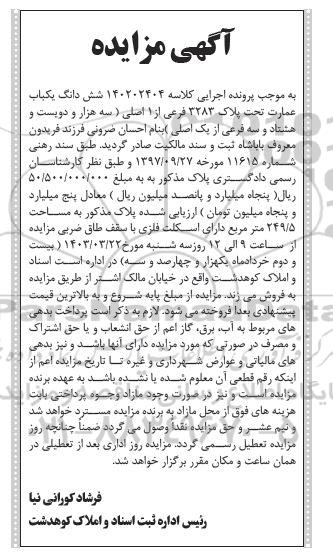 آگهی مزایده
به موجب پرونده اجرایی کلاسه ۱۴۰۲۰۲۴۰۴ شش دانگ یکباب
عمارت تحت پلاک ۳۲۸۳ فرعی از۱ اصلی ( سه هزار و دویست و
هشتاد و سه فرعی از یک اصلی )بنام احسان ضرونی فرزند فریدون
معروف باباشاه ثبت و سند مالکیت صادر گردید. طبق سند رهنی
شماره ۱۱۶۱۵ مورخه ۱۳۹۷/۰۹/۲۷ و طبق نظر کارشناسان
رسمی دادگستری پلاک مذکور به به مبلغ ۵۰/۵۰۰/۰۰۰/۰۰۰
ریال( پنجاه میلیارد و پانصد میلیون ریال ) معادل پنج میلیارد
و پنجاه میلیون تومان ) ارزیابی شده پلاک مذکور به مساحت
۲۴۹/۵ متر مربع دارای اسکلت فلزی با سقف طاق ضربی مزایده
از ساعت ۹ الی ۱۲ روزسه شنبه مورخ ۱۴۰۳/۰۳/۲۲ ( بیست
و دوم خردادماه یکهزار و چهارصد و سه) در اداره اسناد
و املاک کوهدشت واقع در خیابان مالک اشتر از طریق مزایده
به فروش می زند. مزایده از مبلغ پایه شروع و به بالاترین قیمت
پیشنهادی بعدا فروخته می شود. لازم به ذکر است پرداخت بدهی
های مربوط به آب، برق، گاز اعم از حق انشعاب و یا حق اشتراک
و مصرف در صورتی که مورد مزایده دارای آنها باشد و نیز بدهی
های مالیاتی و عوارض شهرداری و غیره تا تاریخ مزایده اعم از
اینکه رقم قطعی آن معلوم شده یا نشده باشد به عهده برنده
مزایده است و نیز در صورت وجود مازاد وجوه پرداختی بابت
هزینه های فوق از محل مازاد به برنده مزایده مسترد خواهد شد
و نیم عشر و حق مزایده نقدا وصول می گردد ضمنا چنانچه روز
مزایده تعطیل رسمی گردد. مزایده روز اداری بعد از تعطیلی در
همان ساعت و مکان مقرر برگزار خواهد شد.
فرشاد کورانی نیا
رئیس اداره ثبت اسناد و املاک کوهدشت